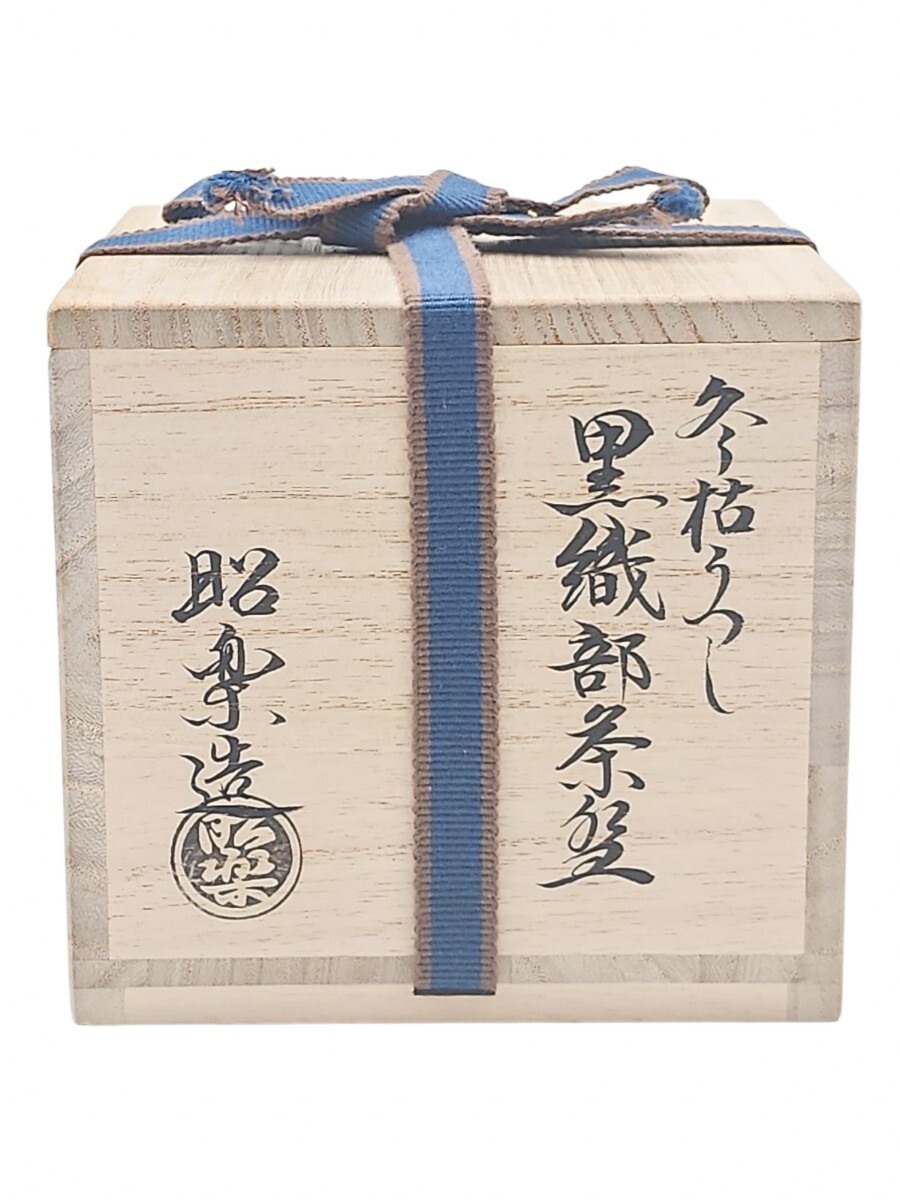 冬枯うつし
黒織部茶盌
昭楽造
昭楽